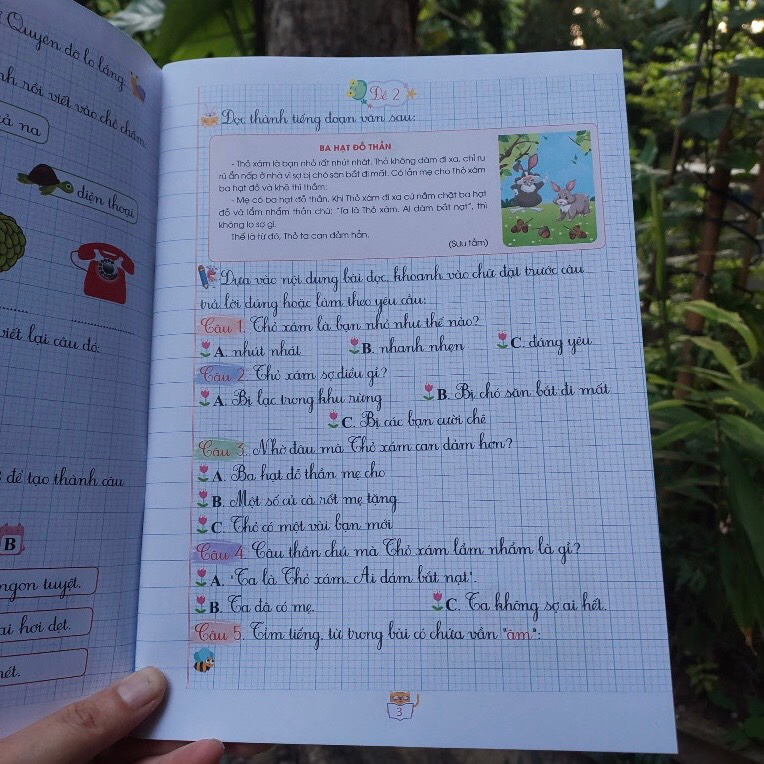 Quyên dỗ lo lắng
nh rồi viết vào chỗ chấm
ả na
điện thoại
viết lại câu đó
để tạo thành câu
B
ngon tuyệt.
ai hơi dẹt.
hét.
Đề 2
Đọc thành tiếng đoạn văn sau:
BA HẠT ĐỖ THẦN
- Thỏ xám là bạn nhỏ rất nhút nhát. Thỏ không dám đi xa, chỉ ru
rú ẩn nấp ở nhà vì sợ bị chó săn bắt đi mất. Có lần mẹ cho Thỏ xám
ba hạt đỗ và khẽ thì thầm:
- Mẹ có ba hạt đỗ thần. Khi Thỏ xám đi xa cứ nắm chặt ba hạt
đỗ và lẩm nhẩm thần chú: "Ta là Thỏ xám. Ai dám bắt nạt", thì
không lo sợ gì.
Thế là từ đó, Thỏ ta can đảm hẳn.
(Sưu tầm)
Dựa vào nội dung bài đọc, khoanh vào chữ đặt trước câu
trả lời đúng hoặc làm theo yêu cầu:
Câu 1. Thỏ xám là bạn nhỏ như thế nào?
A. nhút nhát B. nhanh nhẹn C. đáng yêu
Câu 2. Thỏ xám sợ điều gì?
A. Bị lạc trong khu rừng B. Bị chó săn bắt đi mất
C. Bị các bạn cười chê
Câu 3. Nhờ đâu mà Thỏ xám can đảm hơn?
A. Ba hạt đỗ thần mẹ cho
B. Một số củ cà rốt mẹ tặng
C. Thỏ có một vài bạn mới
Câu 4. Câu thần chú mà Thỏ xám lẩm nhẩm là gì?
A. "Ta là Thỏ xám. Ai dám bắt nạt".
B. Ta đã có mẹ. C. Ta không sợ ai hết.
Câu 5. Tìm tiếng, từ trong bài có chứa vần "ăm":
3